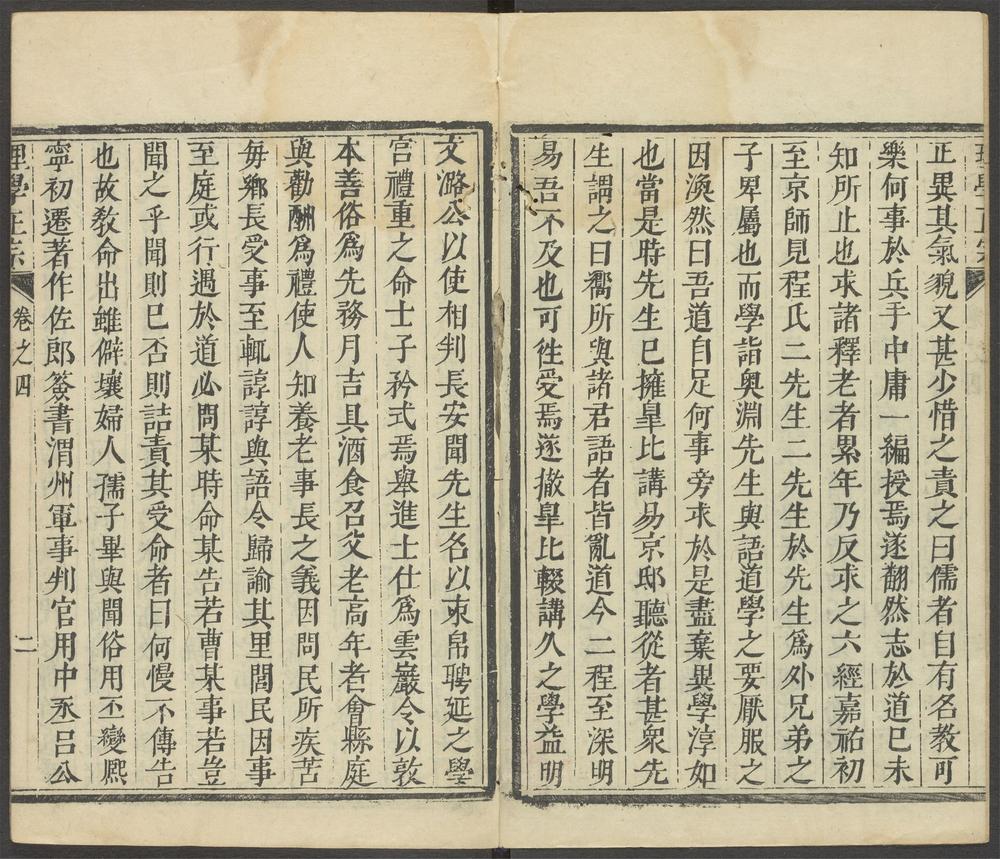 理學正宗
正異其氣貌又甚少惜之責之曰儒者自有名教可
樂何事於兵手中庸一編授焉遂翻然志於道已未
知所止也求諸釋老者累年乃反求之六經嘉祐初
至京師見程氏二先生二先生於先生爲外兄弟之
子卑屬也而學詣奧淵先生與語道學之要厭服之
因渙然曰吾道自足何事旁求於是盡棄異學淳如
也當是時先生已擁皐比講易京邸聽從者甚衆先
生謂之曰嚮所與諸君語者皆亂道今二程至深明
易吾不及也可徃受焉遂撤皐比輟講久之學益明
文潞公以使相判長安聞先生名以束帛聘延之學
宮禮重之命士子矜式焉舉進士仕爲雲巖令以敦
本善俗爲先務月吉具酒食召父老高年者會縣庭
與勸酬爲禮使人知養老事長之義因問民所疾苦
每鄉長受事至輒諄諄與語令歸諭其里閭民因事
至庭或行遇於道必問某時命某告若曹某事若豈
聞之乎聞則已否則詰責其受命者曰何慢不傳告
也故教命出雖僻壤婦人孺子畢與聞俗用丕變熙
寧初遷著作佐郎簽書渭州軍事判官用中丞呂公
理學正宗 卷之四 二